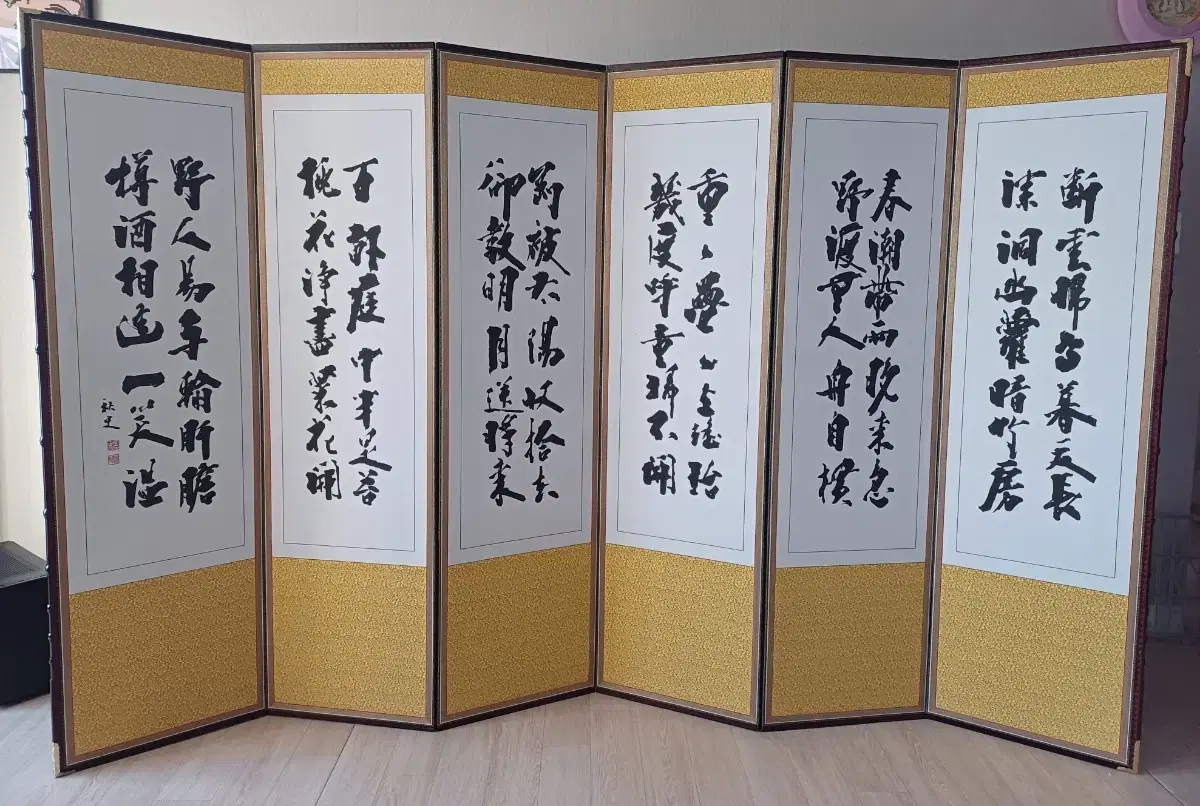 斷雲歸鳥暮天長
深洞幽蘿暗竹房
春潮帶雨晚來急
野渡無人舟自橫
重〻疊〻上瑤臺
幾度呼童掃不開
剛被太陽收拾去
卻敎明月送將來
百畝庭中半是苔
桃花淨盡菜花開
野人易與輸肝膽
樽酒相逢一笑溫
秋史